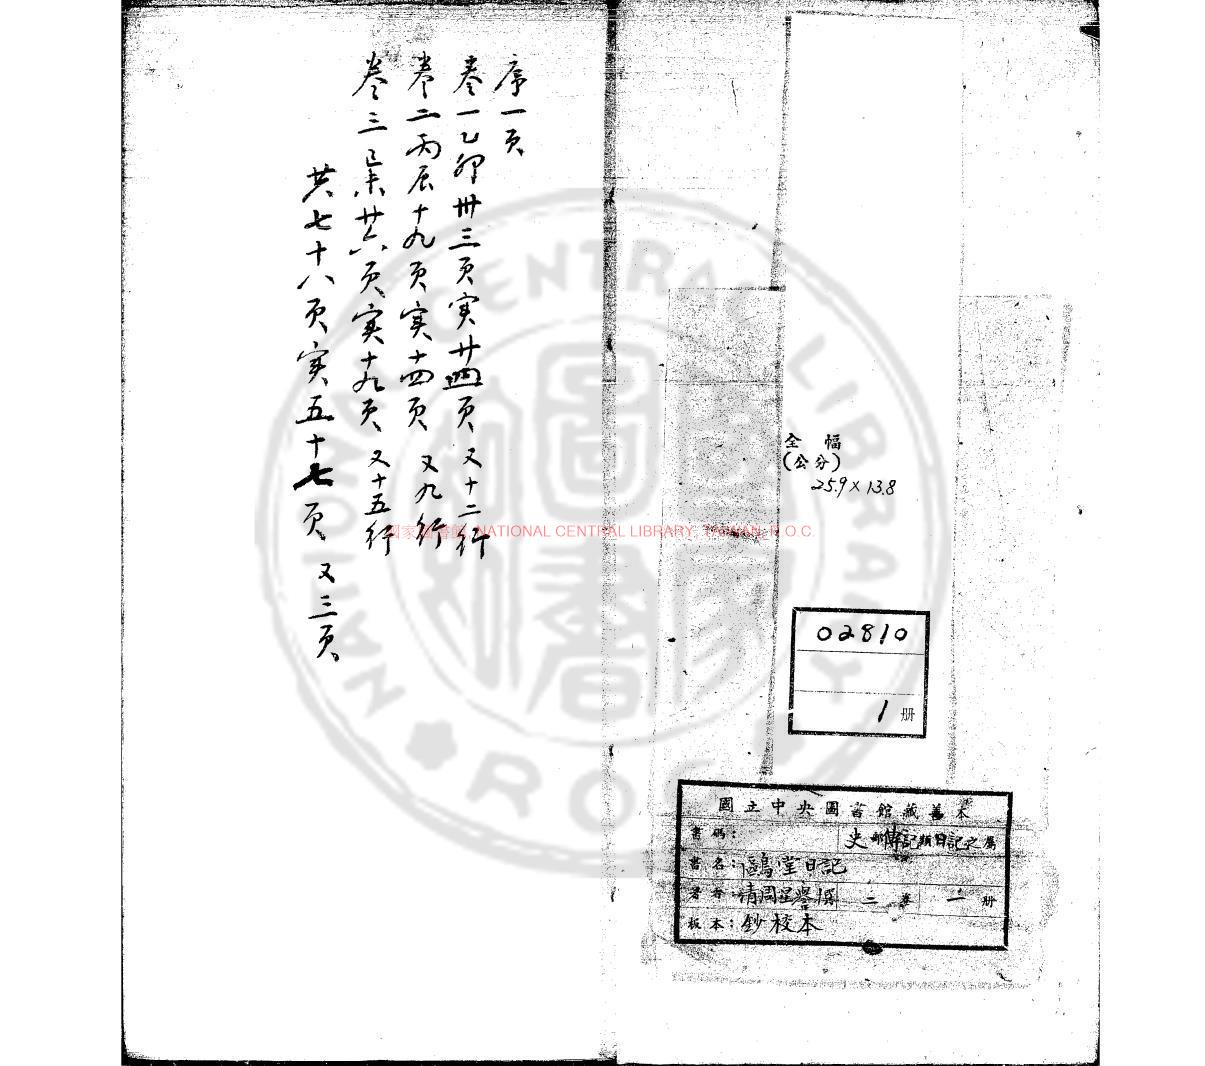 全幅
(公分)
25.9×13.8
02810
1 册
國立中央圖書館藏善本
書碼： 史部傳記類日記之屬
書名：鷗堂日記
著者：清周星譽撰 二卷 一册
板本：鈔校本
序一頁
卷一乙卯卅三頁實廿四頁 又十二行
卷二丙辰十九頁實十四頁 又九行
卷三己未廿六頁實十九頁 又十五行
共七十八頁實五十七頁 又三頁
國家圖書館, NATIONAL CENTRAL LIBRARY, TAIWAN, R.O.C.
NATIONAL CENTRAL LIBRARY
ROC
國家圖書館